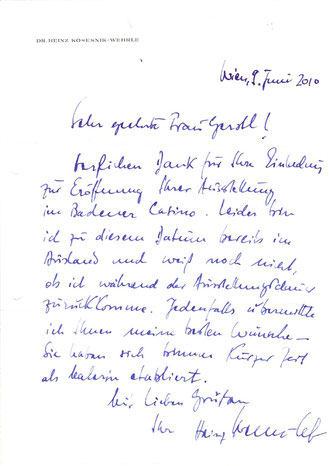 DR. HEINZ KOSESNIK-WEHRLE
Wien, 9. Juni 2010
Sehr geehrte Frau Gerstl!
herzlichen Dank für Ihre Einladung
zur Eröffnung Ihrer Ausstellung
im Badener Casino. Leider bin
ich zu diesem Datum bereits im
Ausland und weiß noch nicht,
ob ich während der Ausstellungsdauer
zurückkomme. Jedenfalls übermittle
ich Ihnen meine besten Wünsche –
Sie haben sich binnen kurzer Zeit
als Malerin etabliert.
Mit lieben Grüßen
Ihr Heinz